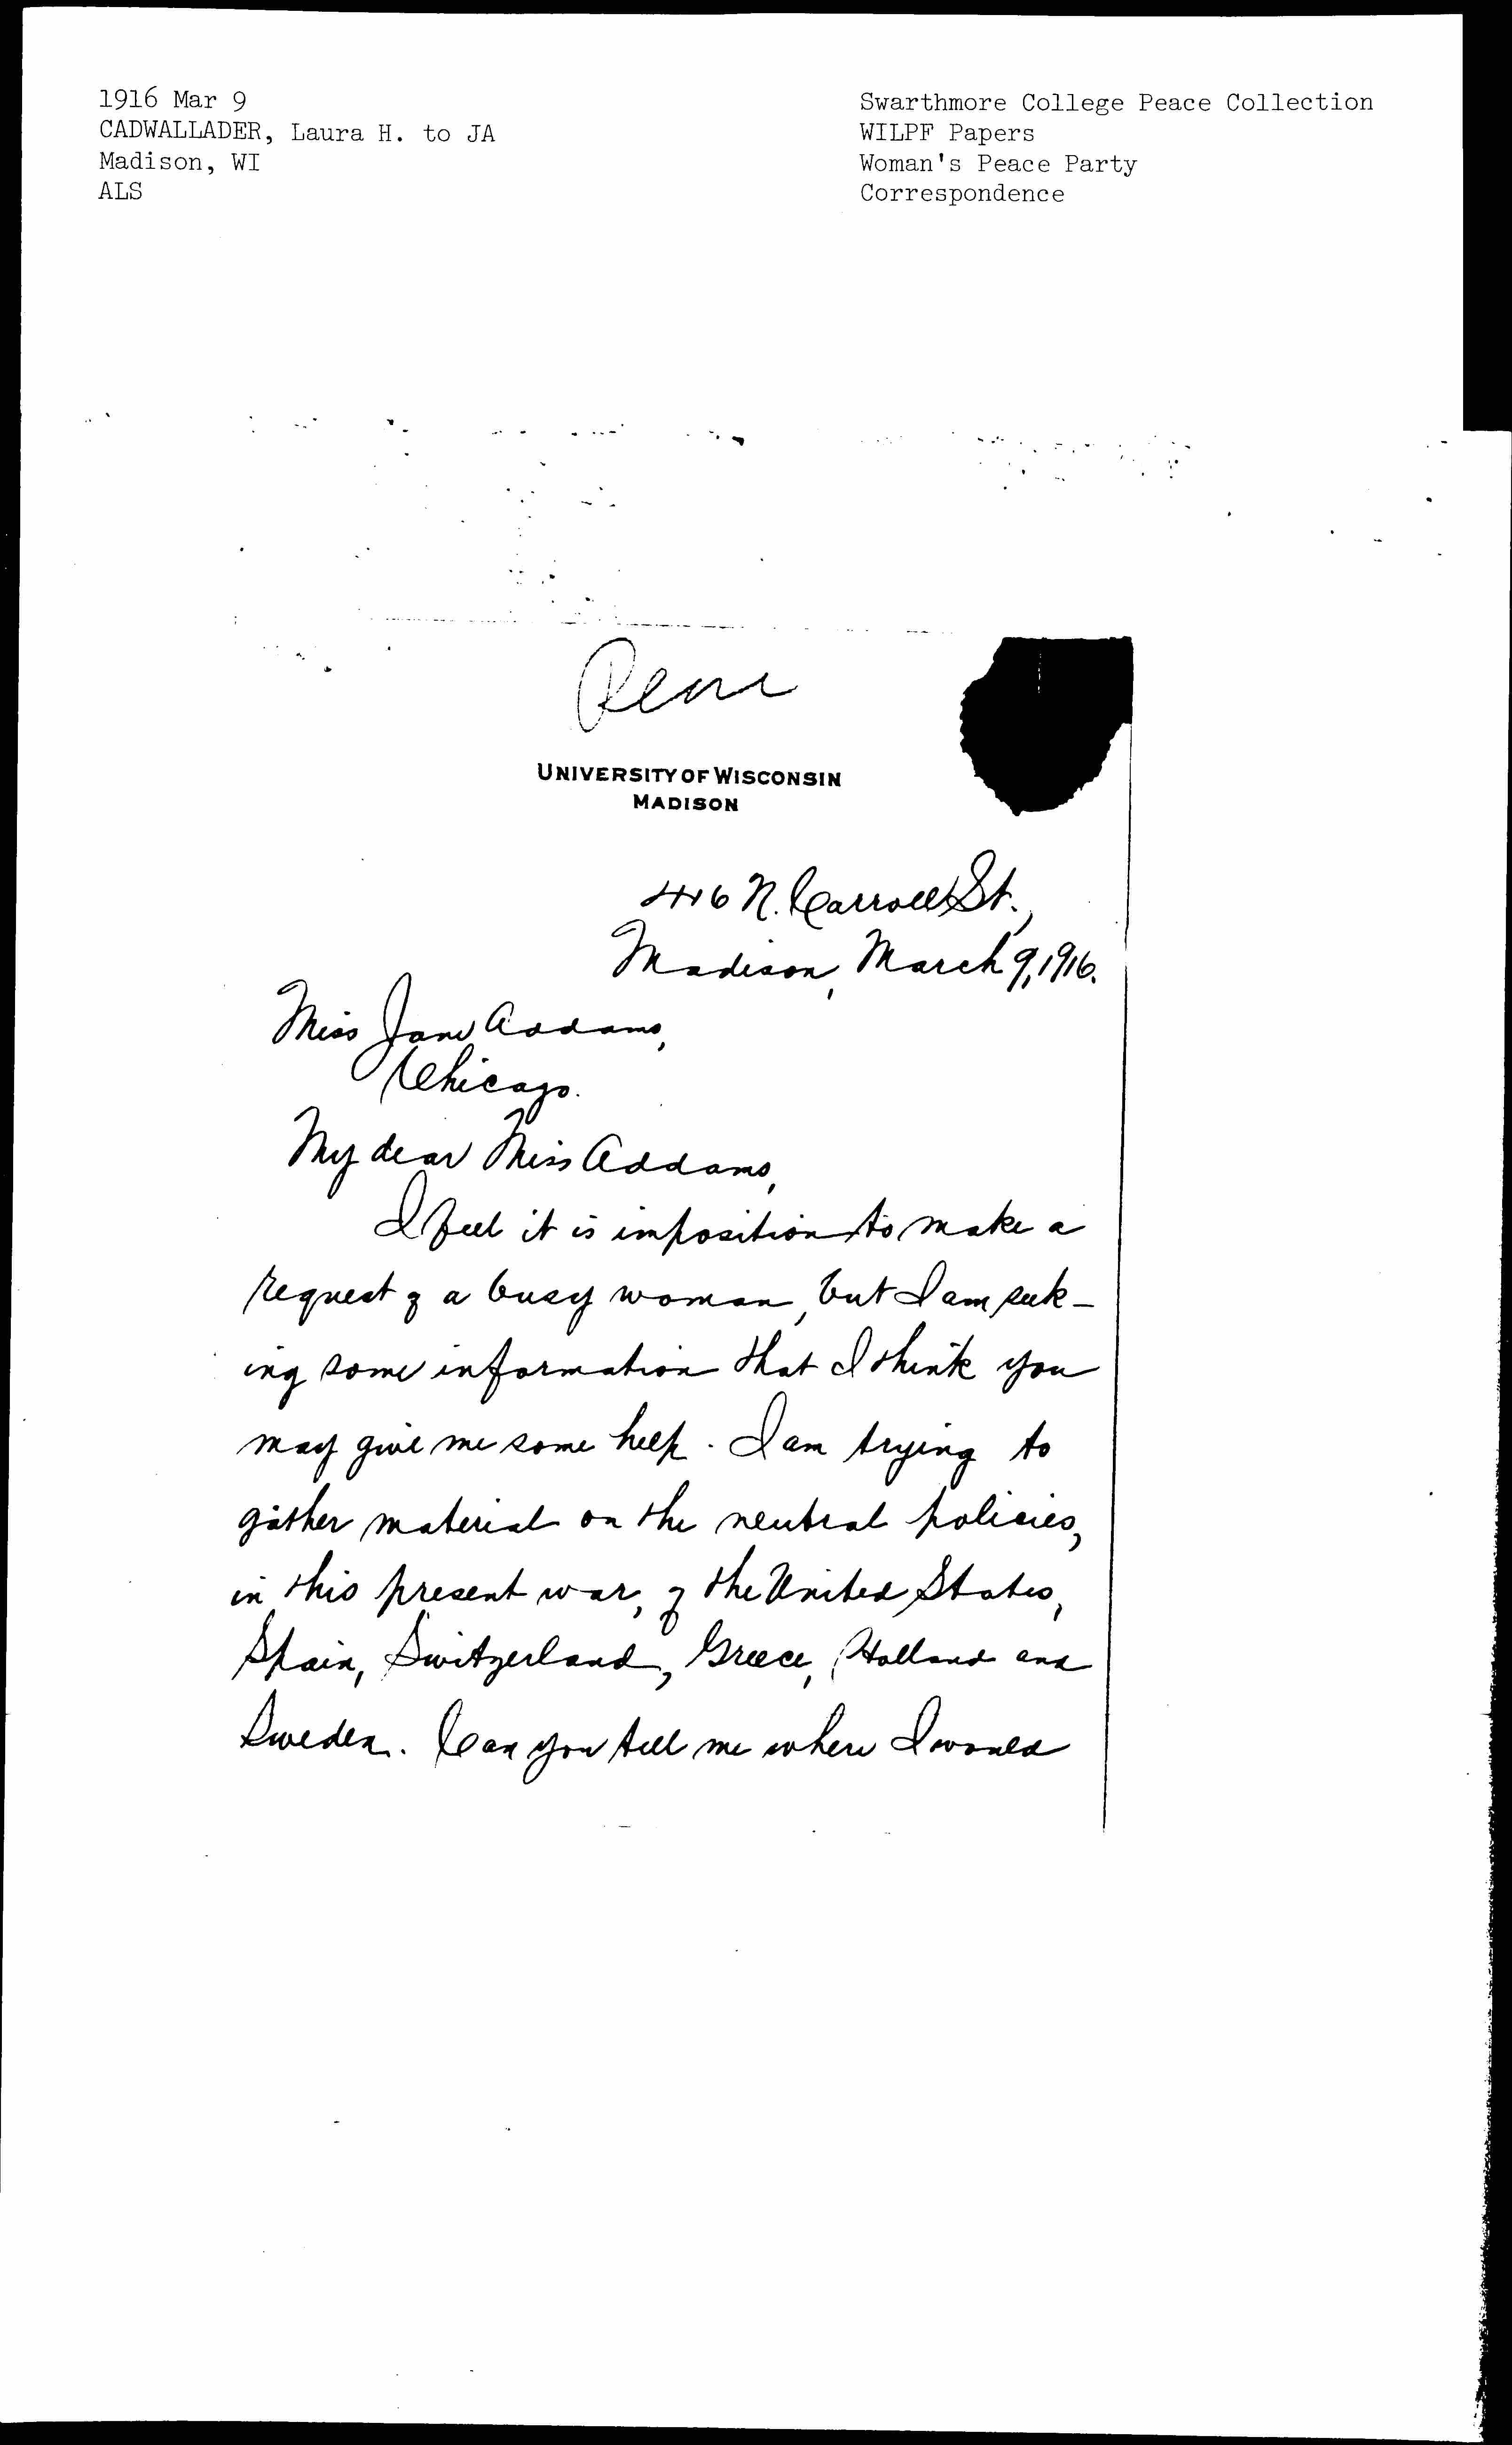 1916 Mar 9
CADWALLADER, Laura H. to JA
Madison, WI
ALS
Swarthmore College Peace Collection
WILPF Papers
Woman's Peace Party
Correspondence
UNIVERSITY OF WISCONSIN
MADISON
416 N. Carroll St.,
Madison, March 9, 1916.
Miss Jane Addams,
Chicago.
My dear Miss Addams,
I feel it is imposition to make a
request of a busy woman, but I am seek-
ing some information that I think you
may give me some help. I am trying to
gather material on the neutral policies,
in this present war, of the United States,
Spain, Switzerland, Greece, Holland and
Sweden. Can you tell me where I would